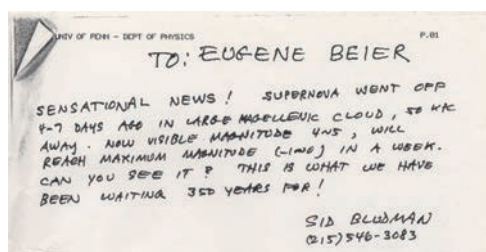 UNIV OF PENN - DEPT OF PHYSICS P.01
TO: EUGENE BEIER
SENSATIONAL NEWS! SUPERNOVA WENT OFF
4-7 DAYS AGO IN LARGE MAGELLENIC CLOUD, 50 KPC
AWAY. NOW VISIBLE MAGNITUDE 4M5, WILL
REACH MAXIMUM MAGNITUDE (-1M0) IN A WEEK.
CAN YOU SEE IT? THIS IS WHAT WE HAVE
BEEN WAITING 350 YEARS FOR!
SID BLUDMAN
(215)546-3083